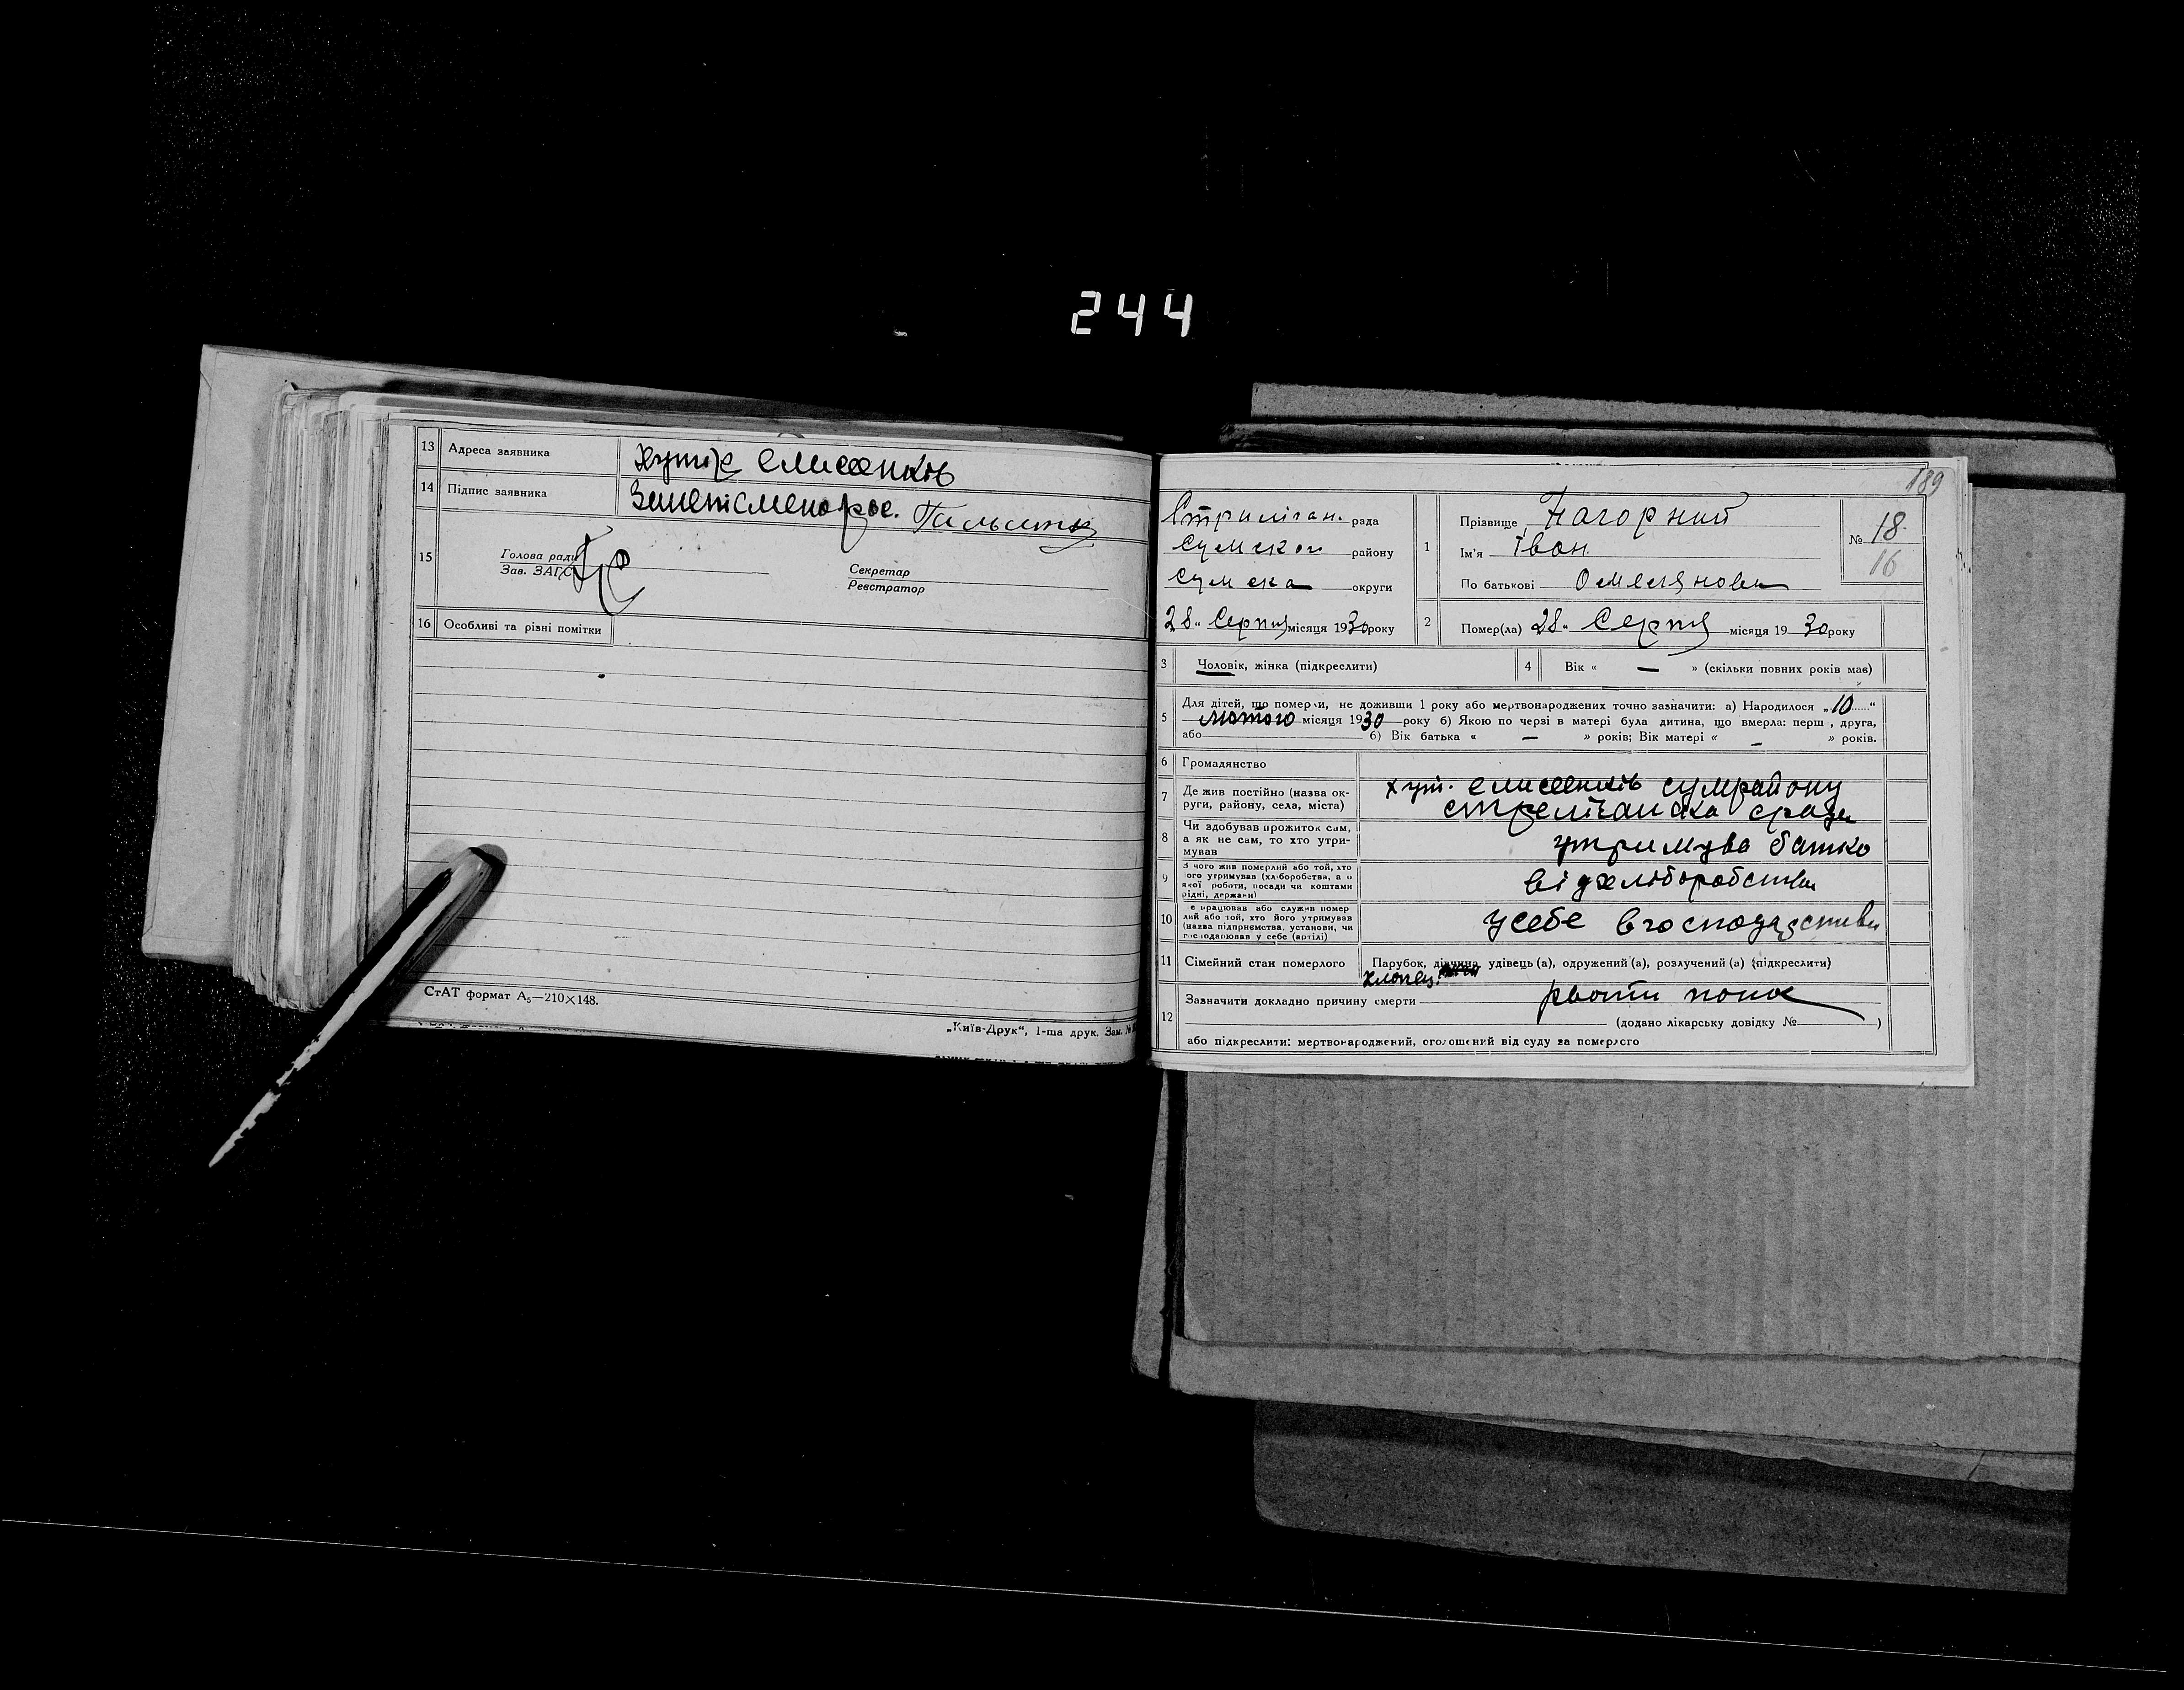 244
13 Адреса заявника хутір Єлисеенків
14 Підпис заявника
15 Голова ради
Зав. ЗАГС
Секретар
Реєстратор
16 Особливі та різні помітки
СтАТ формат А₅—210×148.
„Київ-Друк“, 1-ша друк. Зам. №
189
Стриліган. рада
Сумского району
Сумска округи
28 „ Серпня місяця 1930 року
1 Прізвище Нагорний
Ім'я Іван
По батькові Омеляновы
№ 18
16
2 Помер(ла) 28 „ Серпня місяця 19 30 року
3 Чоловік, жінка (підкреслити)
4 Вік « — » (скільки повних років має)
5 Для дітей, що померли, не доживши 1 року або мертвонароджених точно зазначити: а) Народилося „ 10 “
лютого місяця 1930 року б) Якою по черзі в матері була дитина, що вмерла: перш , друга,
або б) Вік батька « — » років; Вік матері « — » років.
6 Громадянство
7 Де жив постійно (назва ок-
руги, району, села, міста)
хут. Єлисеенків сумрайону
8 Чи здобував прожиток сам,
а як не сам, то хто утри-
мував
утримува батко
9 З чого жив померлий або той, хто
ого утримував (хліборобства, а о
якої роботи, посади чи коштами
рідні, держави)
від хліборобства
10 е працював або служив помер
лий або той, хто його утримував
(назва підприємства, установи, чи
господарював у себе (артілі)
у себе в господарстви
11 Сімейний стан померлого
Парубок, дівчина, удівець (а), одружений (а), розлучений (а) (підкреслити)
хлопец.
12 Зазначити докладно причину смерти
(додано лікарську довідку № )
або підкреслити: мертвонароджений, оголошений від суду за померлого